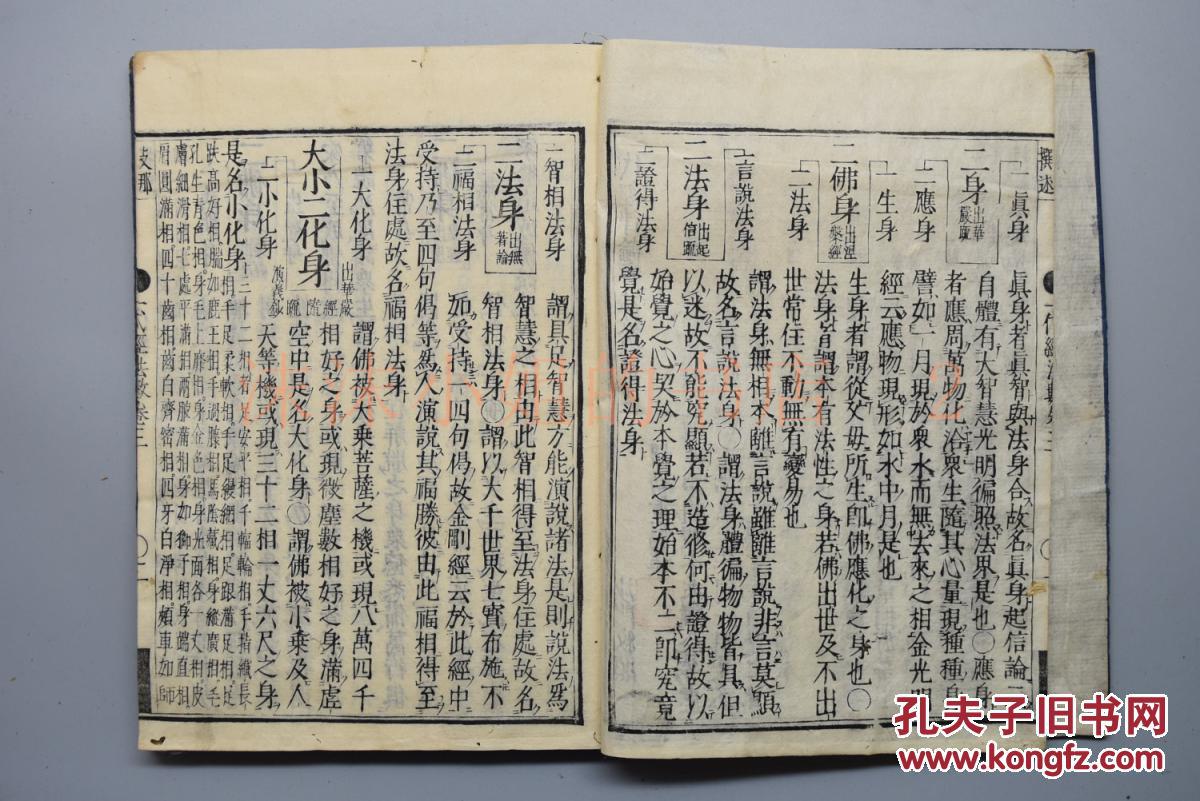 撰述
一真身
二身 出華嚴疏
二應身
真身者真智與法身合故名真身起信論云
自體有大智慧光明徧照法界是也〇應身
者應周萬物化洽衆生隨其心量現種種身
譬如一月現於衆水而無去來之相金光明
經云應物現形如水中月是也
一生身
二佛身 出涅槃經
二法身
生身者謂從父母所生卽佛應化之身也〇
法身者謂本有法性之身若佛出世及不出
世常住不動無有變易也
一言說法身
二法身 出起信疏
二證得法身
謂法身無相本離言說雖離言說非言莫顯
故名言說法身〇謂法身體徧物物皆具但
以迷故不能究顯若不造修何由證得故以
始覺之心契於本覺之理始本不二卽究竟
覺是名證得法身
一智相法身
二法身 出無著論
二福相法身
謂具足智慧方能演說諸法是則說法爲
智慧之相由此智相得至法身住處故名
智相法身〇謂以大千世界七寶布施不
如受持一四句偈故金剛經云於此經中
受持乃至四句偈等爲人演說其福勝彼由此福相得至
法身住處故名福相法身
一大化身
大小二化身 出華嚴經隨疏演義鈔
二小化身
謂佛被大乘菩薩之機或現八萬四千
相好之身或現微塵數相好之身滿虛
空中是名大化身〇謂佛被小乘及人
天等機或現三十二相一丈六尺之身
是名小化身
三十二相者足安平相千輻輪相手指纖長
相手足柔軟相手足縵網相足跟滿足相足
趺高好相腨如鹿王相手過膝相馬陰藏相身縱廣相毛
孔生青色相身毛上靡相身金色相身光面各一丈相皮
膚細滑相七處平滿相兩腋滿相身如師子相身端直相
肩圓滿相四十齒相齒白齊密相四牙白淨相頰車如師
支那
孔夫子旧书网
www.kongfz.com